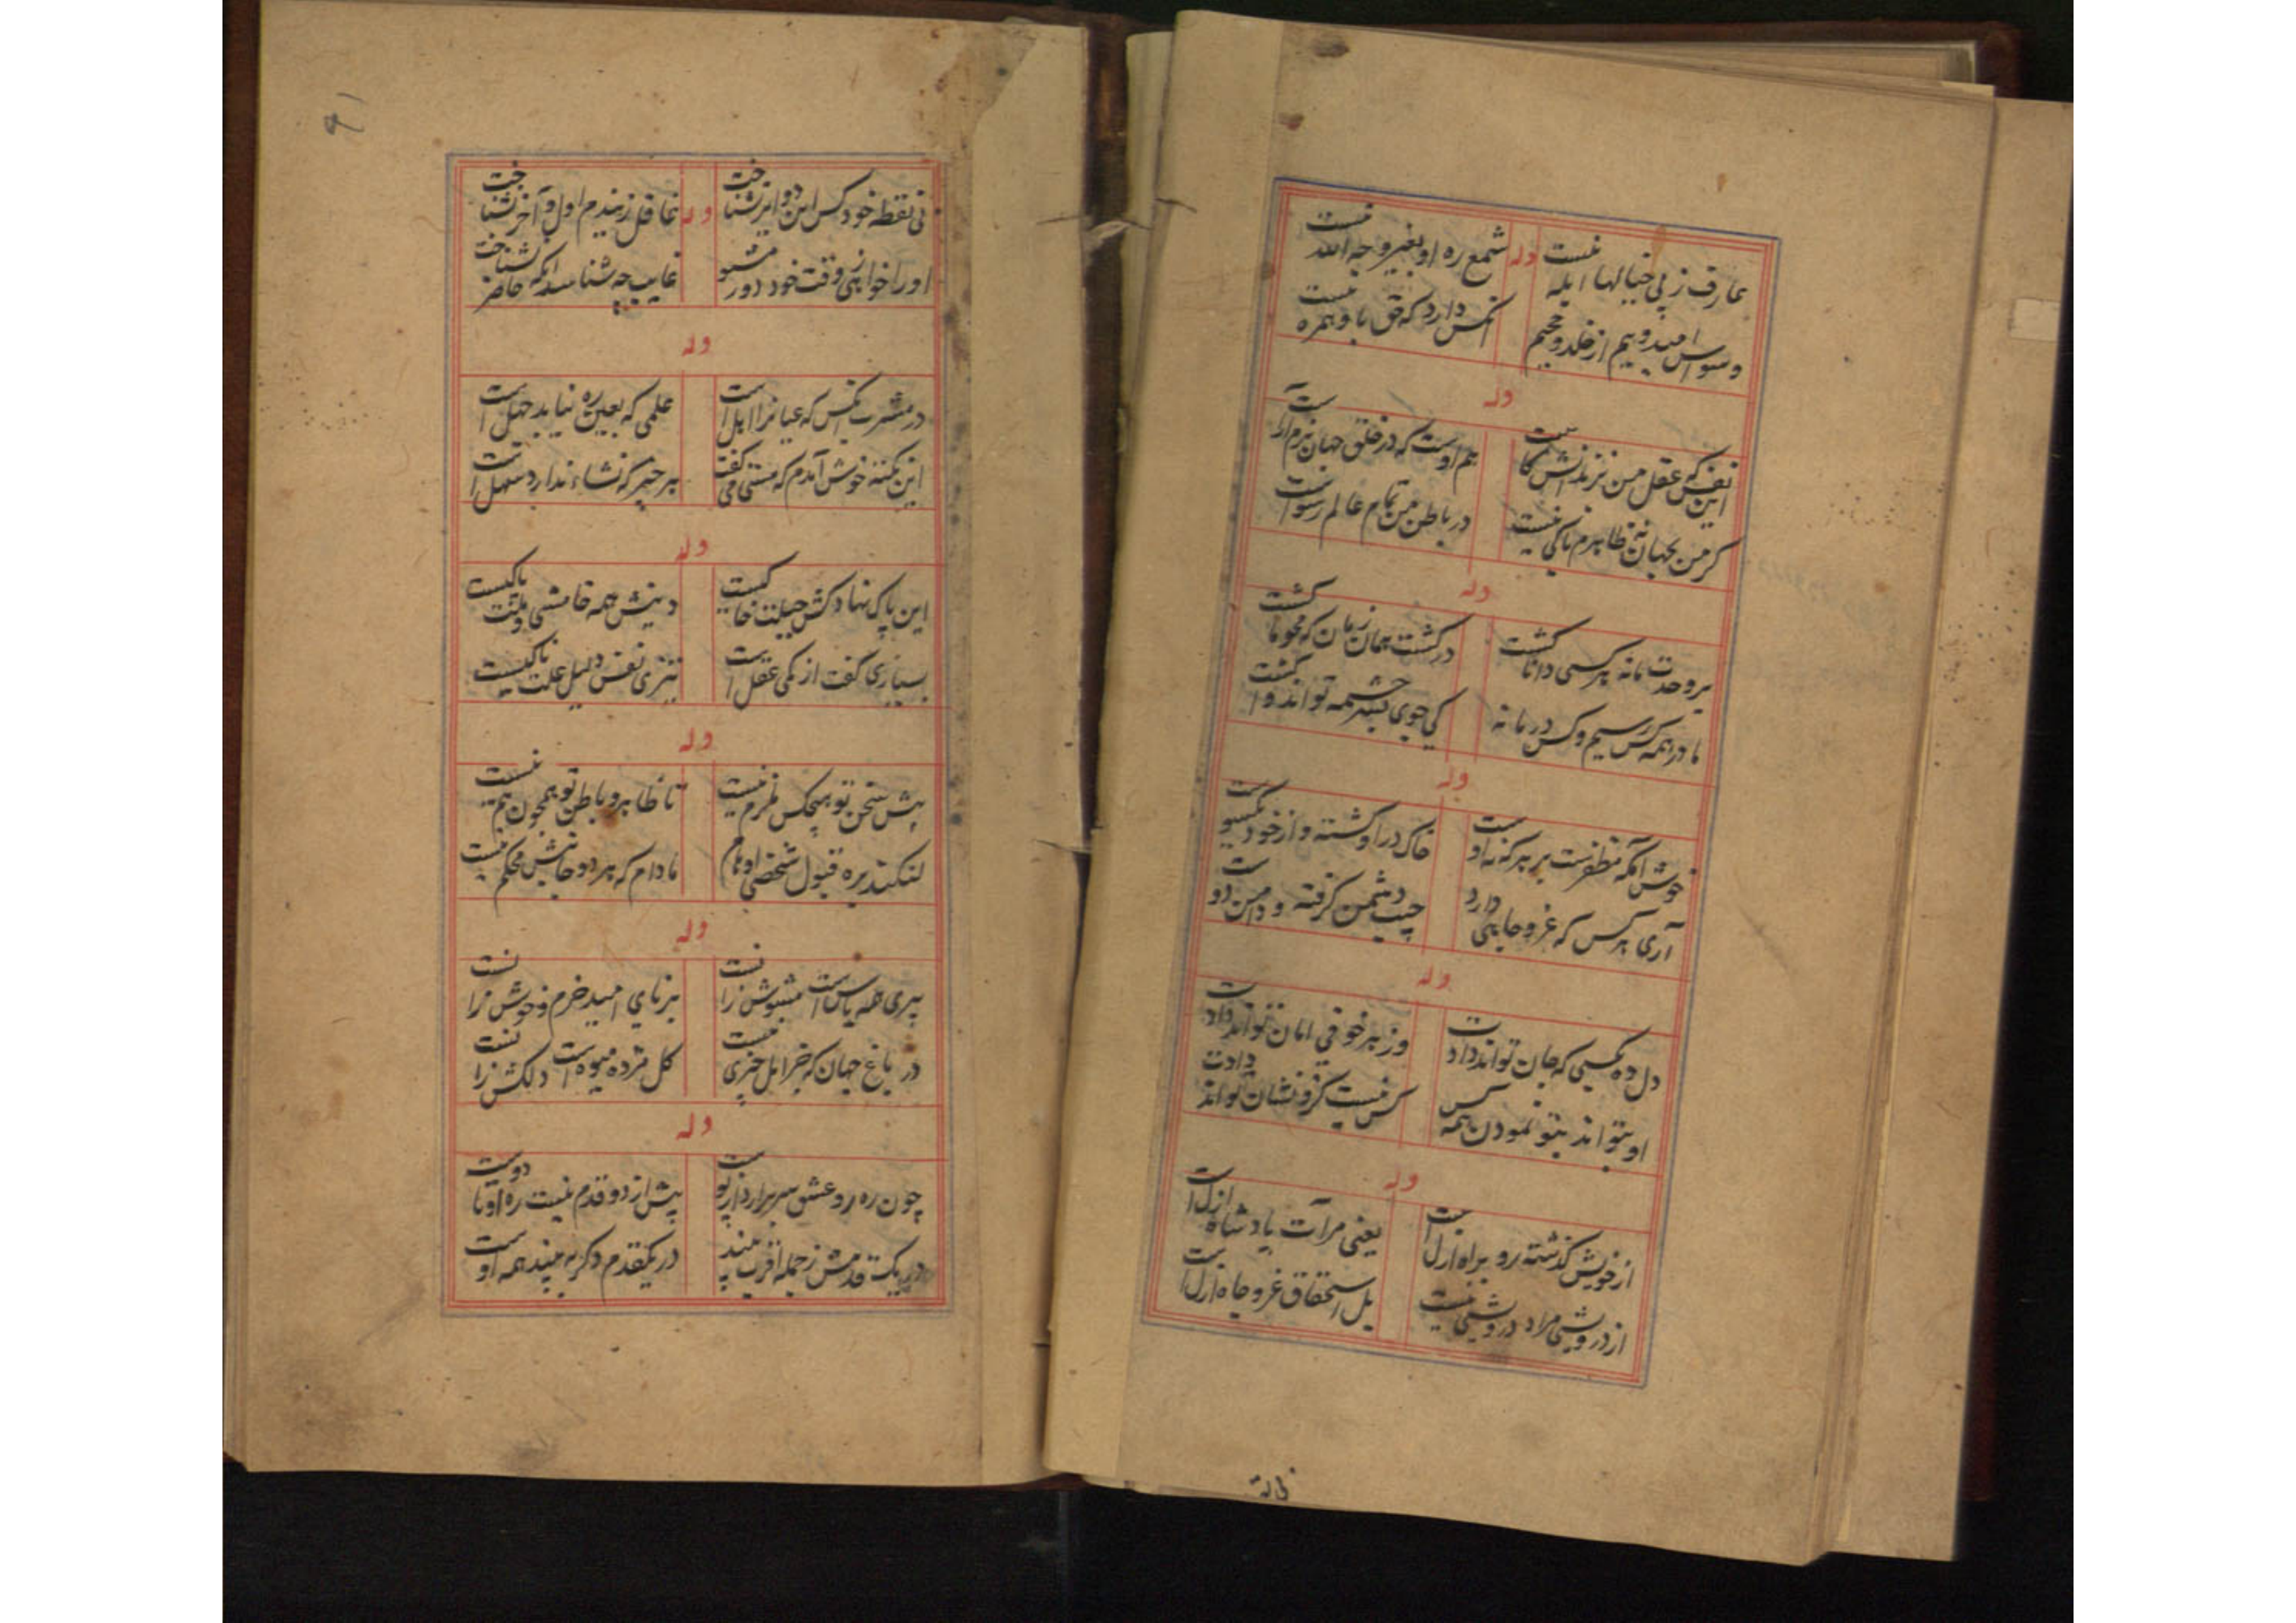 عارف ز پی خیالها ابله نیست
وله
شمع ره او بغیر وجه الله نیست
وسواس امید و بیم از خلد و جحیم
آنکس دارد که حق باو همره نیست
وله
این نفس که عقل من نرنداش کاست
هم اوست که در خلق جهان بزم آراست
کر من بجهان ظاهرم باکی نیست
در باطن من تمام عالم رسواست
وله
بر وحدت ما نه هر کسی دانا کشت
در کشت همان زمان که محو ما کشت
ما در همه کس رسیم و کس در ما نه
کی جوی بسرچشمه تواند وا کشت
وله
خوش آنکه مظفرست بر هر که نه اوست
خاک در او کشته و از خود یکسوست
آری هر کس که عز و جاهی دارد
جیب دشمن کرفته و دامن دوست
وله
دل ده بکسی که جان تواند دادت
وز هر خوفی امان تواند دادت
او بتواند بتو نمودن همه کس
کس نیست کزو نشان تواند دادت
وله
از خویش کذشته رو براه ازل است
یعنی مرآت پادشاه ازل است
از درویشی مراد درویشی نیست
بل استحقاق عز و جاه ازل است
نی نقطه خود کس این دو ایر نشناخت
وله
غافل ز بندم اول و آخر نشناخت
او را خواهی ز وقت خود دور مشو
غایب چه شناسد آنکه حاضر نشناخت
وله
در مشرب آنکس که عیانرا اهل است
علمی که بعین ره نیابد جهل است
این نکته خوش آمدم که مستی می کفت
هر چیز که نشاء ندارد سهل است
وله
این پاک نهاد کش جبلت خاکیست
دینش همه خامشی و ملت پاکیست
بسیاری کفت از کمی عقل است
تیزی نفس دلیل علت ناکیست
وله
پیش سخن تو هیچکس ملزم نیست
تا ظاهر و باطن تو همچون هم نیست
لنکند بره قبول شخص اوهام
مادام که هر دو جانبش محکم نیست
وله
پیری همه یاس است مشوش زانست
برنای امید خرم و خوش زانست
در باغ جهان که جز امل چیزی نیست
کل مژده میوه است دلکش زانست
وله
چون ره رو عشق سر برارد از پوست
پیش از دو قدم نیست ره او تا دوست
در یک قدمش ز جمله اقرب بیند
در یکقدم دکر به بیند همه اوست